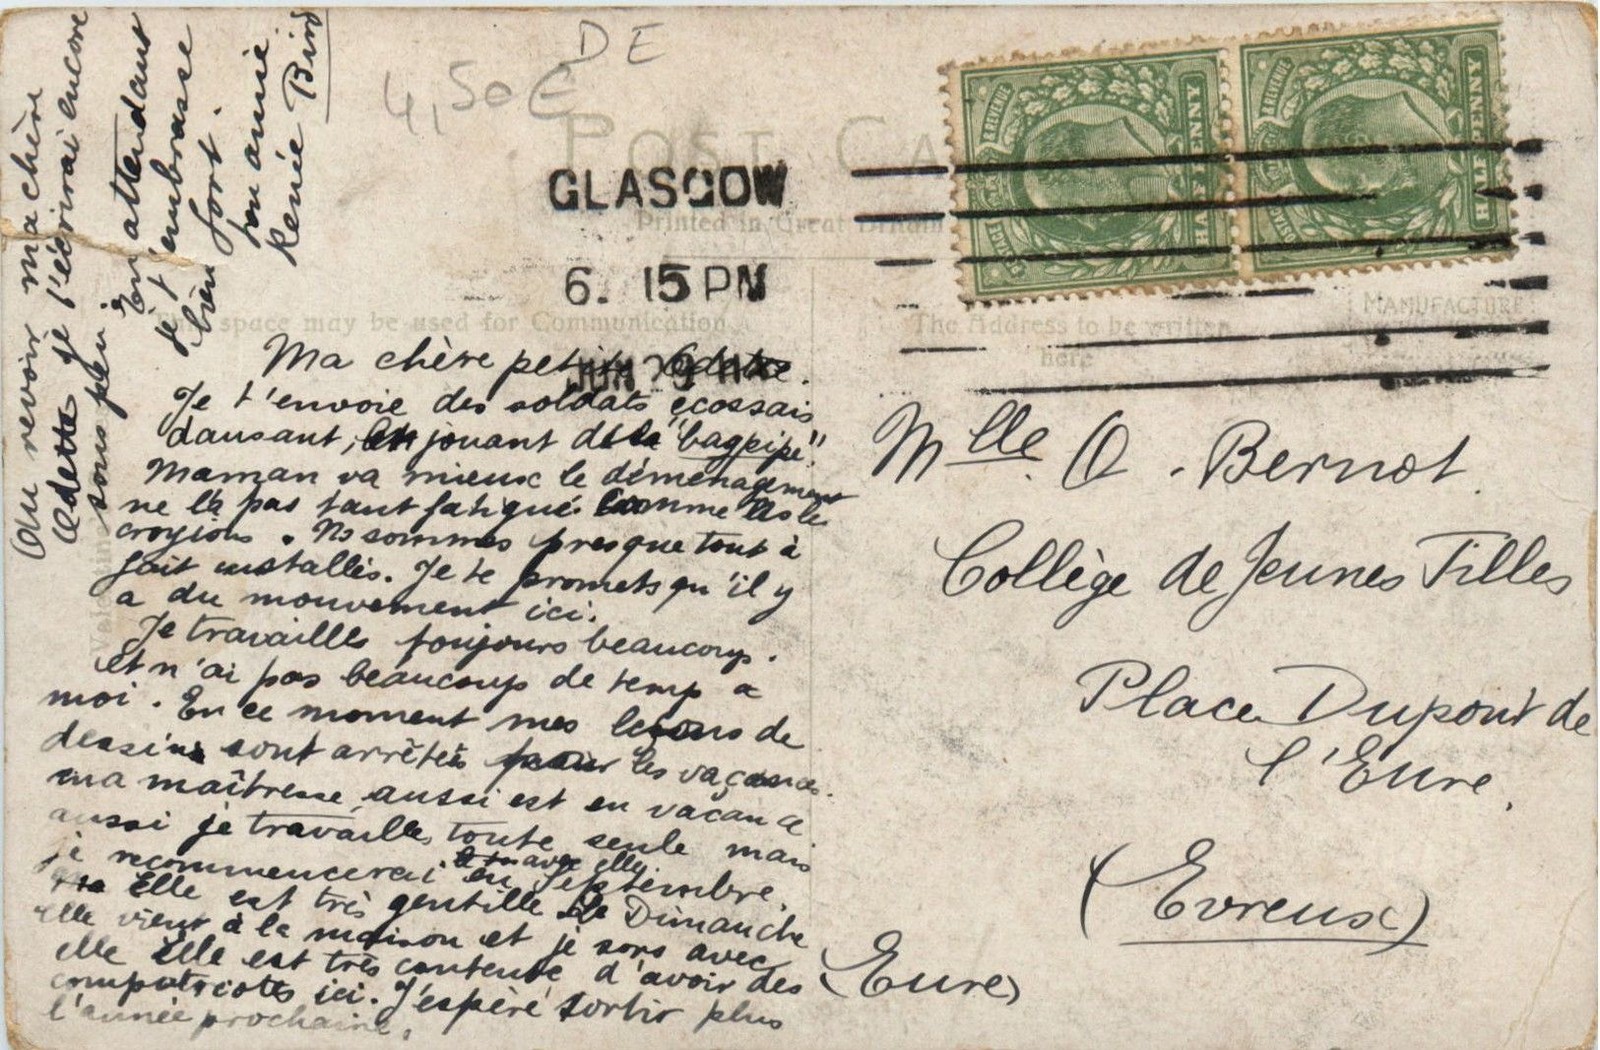 DE
4,50€
POST CA
GLASGOW
Printed in Great Britain
6. 15 PM
JUN 29 11
This space may be used for Communication
The Address to be written
here
MANUFACTURE
POSTAGE
REVENUE
HALF PENNY
POSTAGE
REVENUE
HALF PENNY
Ma chère petite Odette.
Je t'envoie des soldats écossais
dansant, en jouant de la "bagpipe".
Maman va mieux le déménagement
ne l'a pas tant fatigué comme ns le
croyions. Ns sommes presque tout à
fait installés. Je te promets qu'il y
a du mouvement ici.
Je travaille toujours beaucoup.
et n'ai pas beaucoup de temp a
moi. En ce moment mes leçons de
dessins sont arrêtés pour les vaçances.
ma maîtresse aussi est en vacance
aussi je travaille toute seule mais
je recommencerai avec elle
en Septembre.
Elle est très gentille le Dimanche
elle vient à la maison et je sors avec
elle elle est très contente d'avoir des
compatriotes ici. J'espère sortir plus
l'année prochaine.
Au revoir ma chère
Odette je t'écrirai encore
sous peu.
En attendant
je t'embrasse
bien fort.
ton amie
Renée Bird
Mlle. O. Bernot.
Collège de Jeunes Filles
Place Dupont de
l'Eure,
(Evreux)
(Eure)